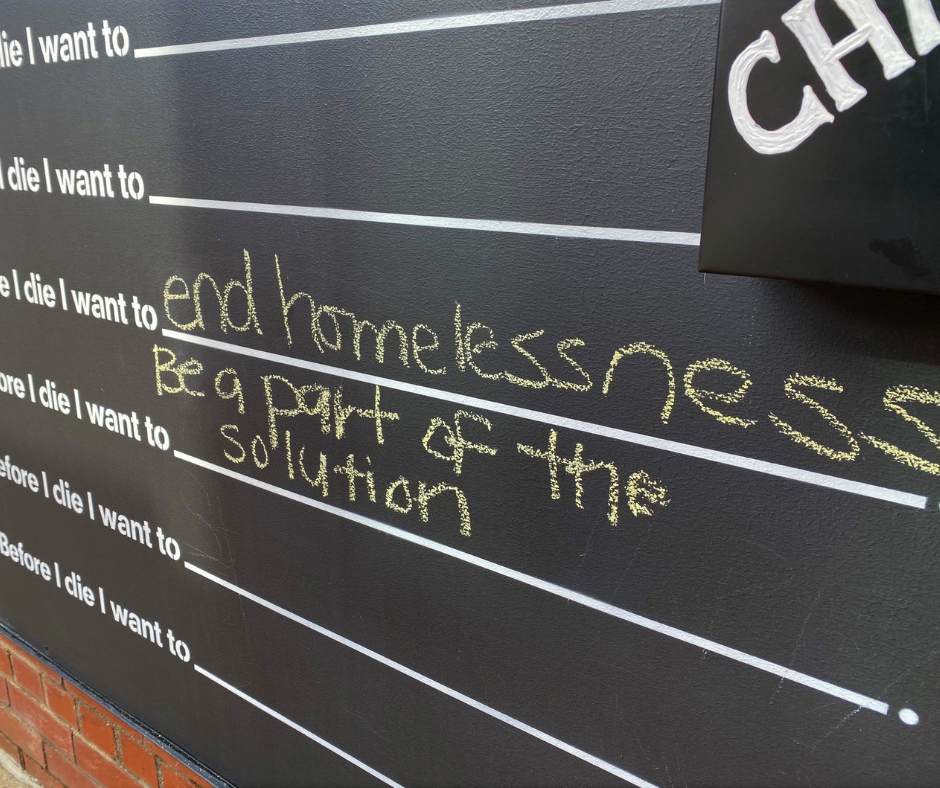 die I want to
I die I want to
e I die I want to end homelessness
Be a part of the
ore I die I want to solution
efore I die I want to
Before I die I want to
CH